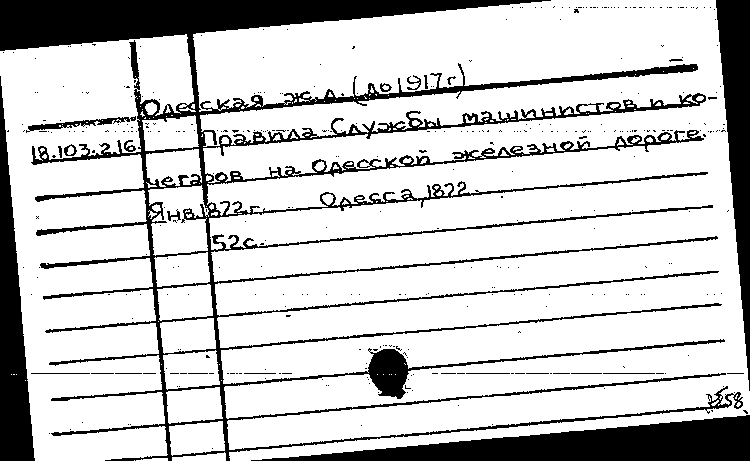 Одесская ж.д. (до 1917 г)
18.103.2.16. Правила Службы машинистов и ко-
чегаров на Одесской железной дороге.
Янв. 1872 г. Одесса, 1872.
52 с.